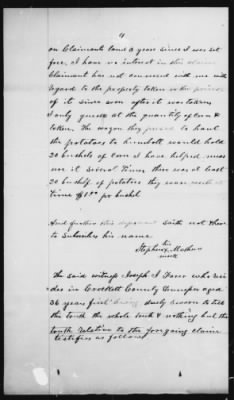 4
on Claimants land 2 years since I was set
free. I have no interest in this claim
Claimant has not conversed with me with
regard to the property taken or the price
of it since soon after it was taken.
I only guess at the quantity of corn &
totten. The wagon they used to haul
the potatoes to Humbolt would hold
20 bushels of corn I have helped meas
ure it several times there was at least
20 bushels of potatoes they were worth at
time $1.00 per bushel
And further this deponent saith not there
to subscribes his name
his
Stephen Mathews
mark
The said witness Joseph J. Farr who resi
des in Crockett County Tennessee aged
36 years first being duly sworn to tell
the truth the whole truth & nothing but the
truth relative to the foregoing claim
testifies as follows